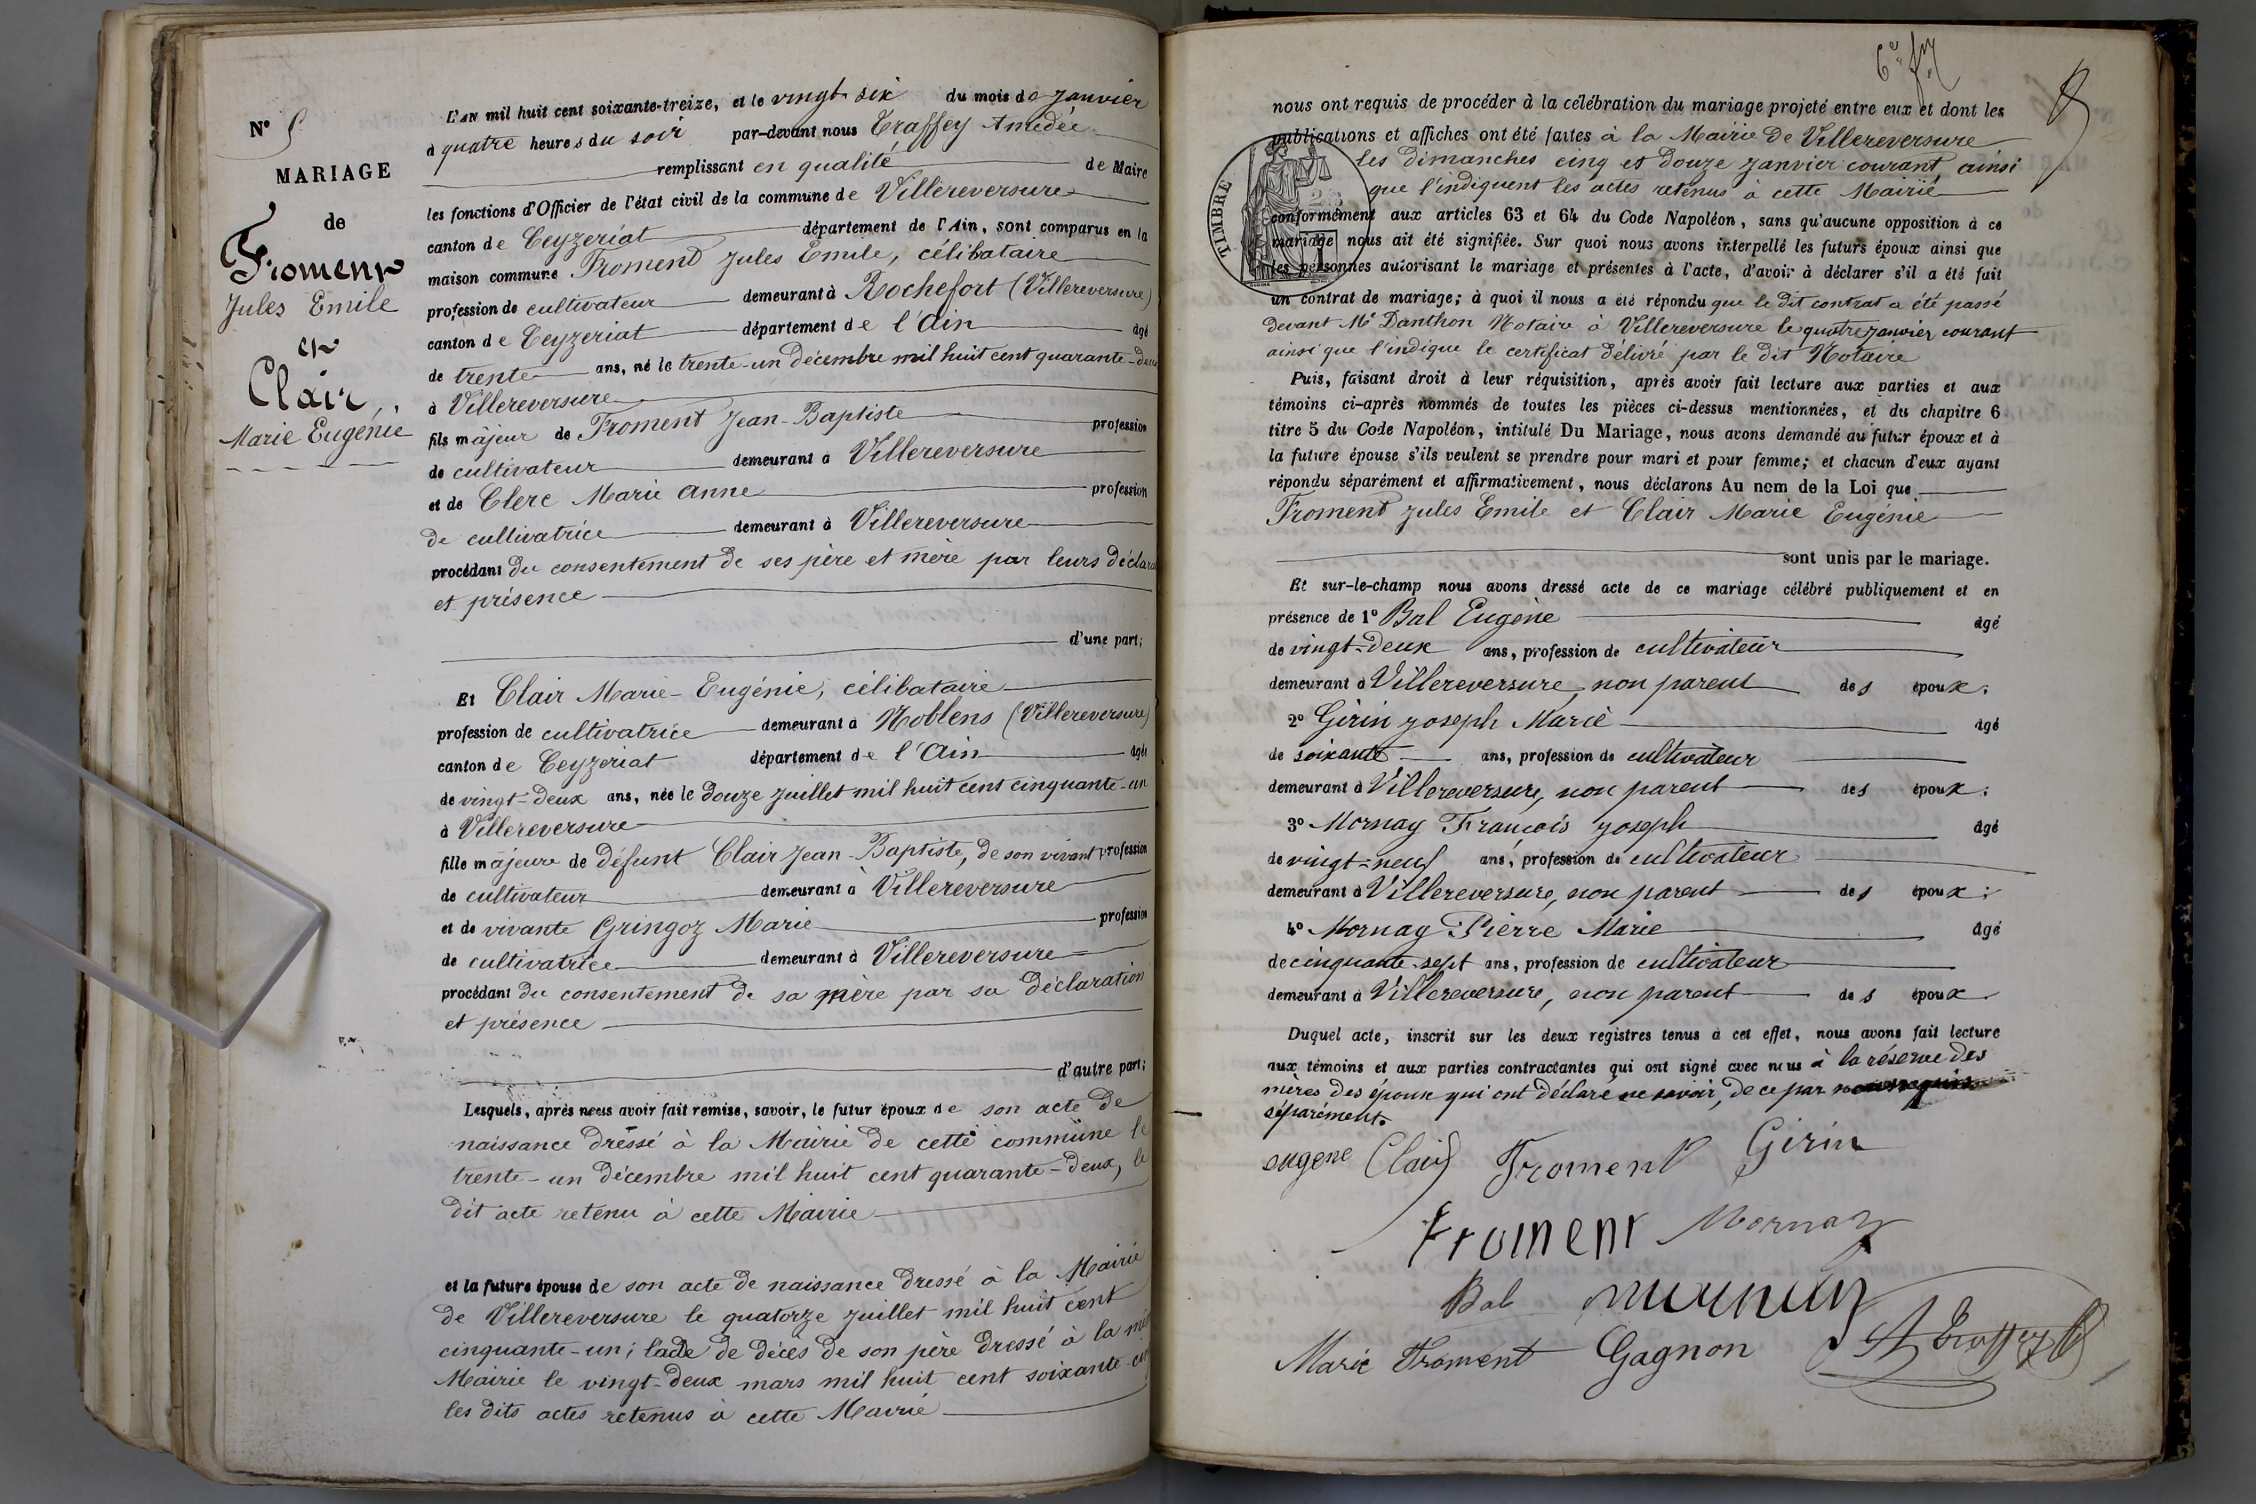 N° 5
MARIAGE
de
Froment
Jules Emile
et
Clair,
Marie Eugénie
L'AN mil huit cent soixante-treize, et le vingt six du mois de Janvier
à quatre heures du soir par-devant nous Traffey Amédée
remplissant en qualité de Maire
les fonctions d'Officier de l'état civil de la commune de Villereversure
canton de Ceyzeriat département de l'Ain, sont comparus en la
maison commune Froment Jules Emile, célibataire
profession de cultivateur demeurant à Rochefort (Villereversure)
canton de Ceyzeriat département de l'Ain âgé
de trente ans, né le trente-un décembre mil huit cent quarante-deux
à Villereversure
fils majeur de Froment Jean-Baptiste profession
de cultivateur demeurant à Villereversure
et de Clerc Marie Anne profession
de cultivatrice demeurant à Villereversure
procédant du consentement de ses père et mère par leurs déclara
et présence
d'une part;
Et Clair Marie-Eugénie, célibataire
profession de cultivatrice demeurant à Noblens (Villereversure)
canton de Ceyzeriat département de l'Ain âgée
de vingt-deux ans, née le douze Juillet mil huit cent cinquante-un
à Villereversure
fille majeure de défunt Clair Jean-Baptiste, de son vivant profession
de cultivateur demeurant à Villereversure
et de vivante Gringoz Marie profession
de cultivatrice demeurant à Villereversure
procédant du consentement de sa mère par sa déclaration
et présence
d'autre part;
Lesquels, après nous avoir fait remise, savoir, le futur époux de son acte de
naissance dressé à la Mairie de cette commune le
trente-un décembre mil huit cent quarante-deux, le
dit acte retenu à cette Mairie
et la future épouse de son acte de naissance dressé à la Mairie
de Villereversure le quatorze Juillet mil huit cent
cinquante-un; l'acte de décès de son père dressé à la mê
Mairie le vingt-deux mars mil huit cent soixante-
les dits actes retenus à cette Mairie
8
nous ont requis de procéder à la célébration du mariage projeté entre eux et dont les
publications et affiches ont été faites à la Mairie de Villereversure
les dimanches cinq et douze Janvier courant, ainsi
que l'indiquent les actes retenus à cette Mairie
TIMBRE
conformément aux articles 63 et 64 du Code Napoléon, sans qu'aucune opposition à ce
mariage nous ait été signifiée. Sur quoi nous avons interpellé les futurs époux ainsi que
les personnes autorisant le mariage et présentes à l'acte, d'avoir à déclarer s'il a été fait
un contrat de mariage; à quoi il nous a été répondu que le dit contrat a été passé
devant Me Danthon Notaire à Villereversure le quatre janvier courant
ainsi que l'indique le certificat délivré par le dit Notaire
Puis, faisant droit à leur réquisition, après avoir fait lecture aux parties et aux
témoins ci-après nommés de toutes les pièces ci-dessus mentionnées, et du chapitre 6
titre 5 du Code Napoléon, intitulé Du Mariage, nous avons demandé au futur époux et à
la future épouse s'ils veulent se prendre pour mari et pour femme; et chacun d'eux ayant
répondu séparément et affirmativement, nous déclarons Au nom de la Loi que
Froment Jules Emile et Clair Marie Eugénie
sont unis par le mariage.
Et sur-le-champ nous avons dressé acte de ce mariage célébré publiquement et en
présence de 1° Bal Eugène âgé
de vingt-deux ans, profession de cultivateur
demeurant à Villereversure, non parent des époux;
2° Girin Joseph Marie âgé
de soixante ans, profession de cultivateur
demeurant à Villereversure, non parent des époux;
3° Mornay François Joseph âgé
de vingt-neuf ans, profession de cultivateur
demeurant à Villereversure, non parent des époux;
4° Mornay Pierre Marie âgé
de cinquante-sept ans, profession de cultivateur
demeurant à Villereversure, non parent des époux
Duquel acte, inscrit sur les deux registres tenus à cet effet, nous avons fait lecture
aux témoins et aux parties contractantes qui ont signé avec nous à la réserve des
mères des époux qui ont déclaré ne savoir, de ce par nous requis
séparément.
eugene Clair Froment Girin
Froment Mornay
Bal mornay
Marie Froment Gagnon A Traffey